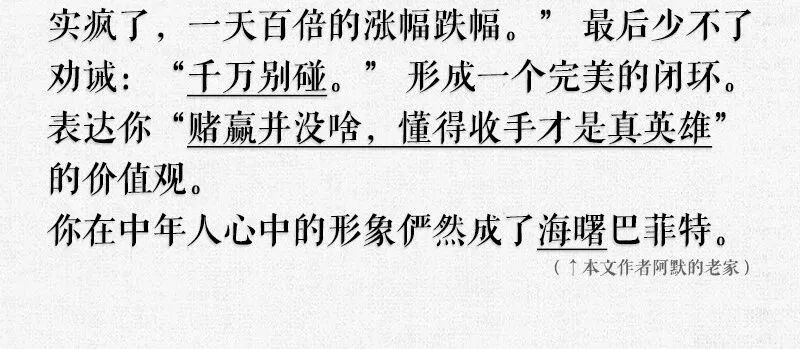 实疯了，一天百倍的涨幅跌幅。” 最后少不了
劝诫：“千万别碰。” 形成一个完美的闭环。
表达你“赌赢并没啥，懂得收手才是真英雄”
的价值观。
你在中年人心中的形象俨然成了海曙巴菲特。
（↑本文作者阿默的老家）